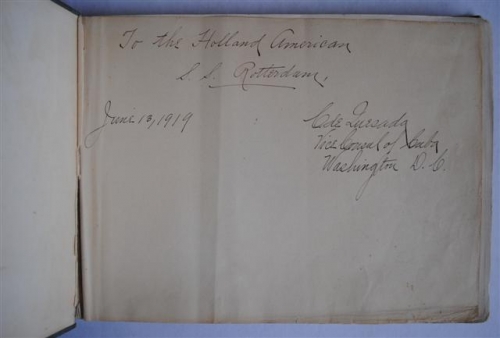 To the Holland American
S. S. Rotterdam,
June 13, 1919
C de Quesada
Vice Consul of Cuba
Washington D. C.